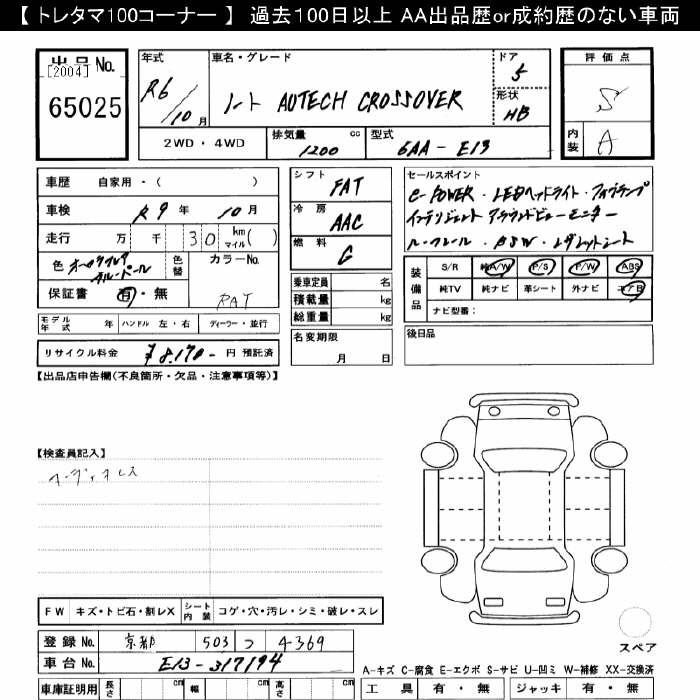 【 トレタマ100コーナー 】 過去100日以上 AA出品歴or成約歴のない車両
出品 No.
[2004]
65025
年式
R6/10月
車名・グレード
ノート AUTECH CROSSOVER
ドア
5
形状
HB
評価点
S
内装
A
2WD・4WD
排気量 1200 cc
型式 6AA-E13
車歴 自家用・( )
車検 R9年 10月
走行 万 千 30 km マイル( )
色
色替
カラーNo.
RAT
保証書 有・無
モデル年式 年 ハンドル 左・右 ディーラー・並行
リサイクル料金 ¥8,170- 円 預託済
シフト FAT
冷房 AAC
燃料 G
乗車定員 名
積載量 kg
総重量 kg
名変期限
月 日
セールスポイント
e-POWER・LEDヘッドライト・フォグランプ
インテリジェント アラウンドビューモニター
ルーフレール・BSW・レザレットシート
装備品
S/R 純A/W P/S P/W ABS
純TV 純ナビ 革シート 外ナビ エアB
ナビ型番:
後日品
【出品店申告欄(不良箇所・欠品・注意事項等)】
【検査員記入】
オーディオレス
FW キズ・トビ石・割レX シート内装 コゲ・穴・汚レ・シミ・破レ・スレ
登録 No. 京都 503 つ 4369
車台 No. E13-317194
車庫証明用 長さ cm 幅 cm 高さ cm
スペア
A-キズ C-腐食 E-エクボ S-サビ U-凹ミ W-補修 XX-交換済
工具 有・無 ジャッキ 有・無